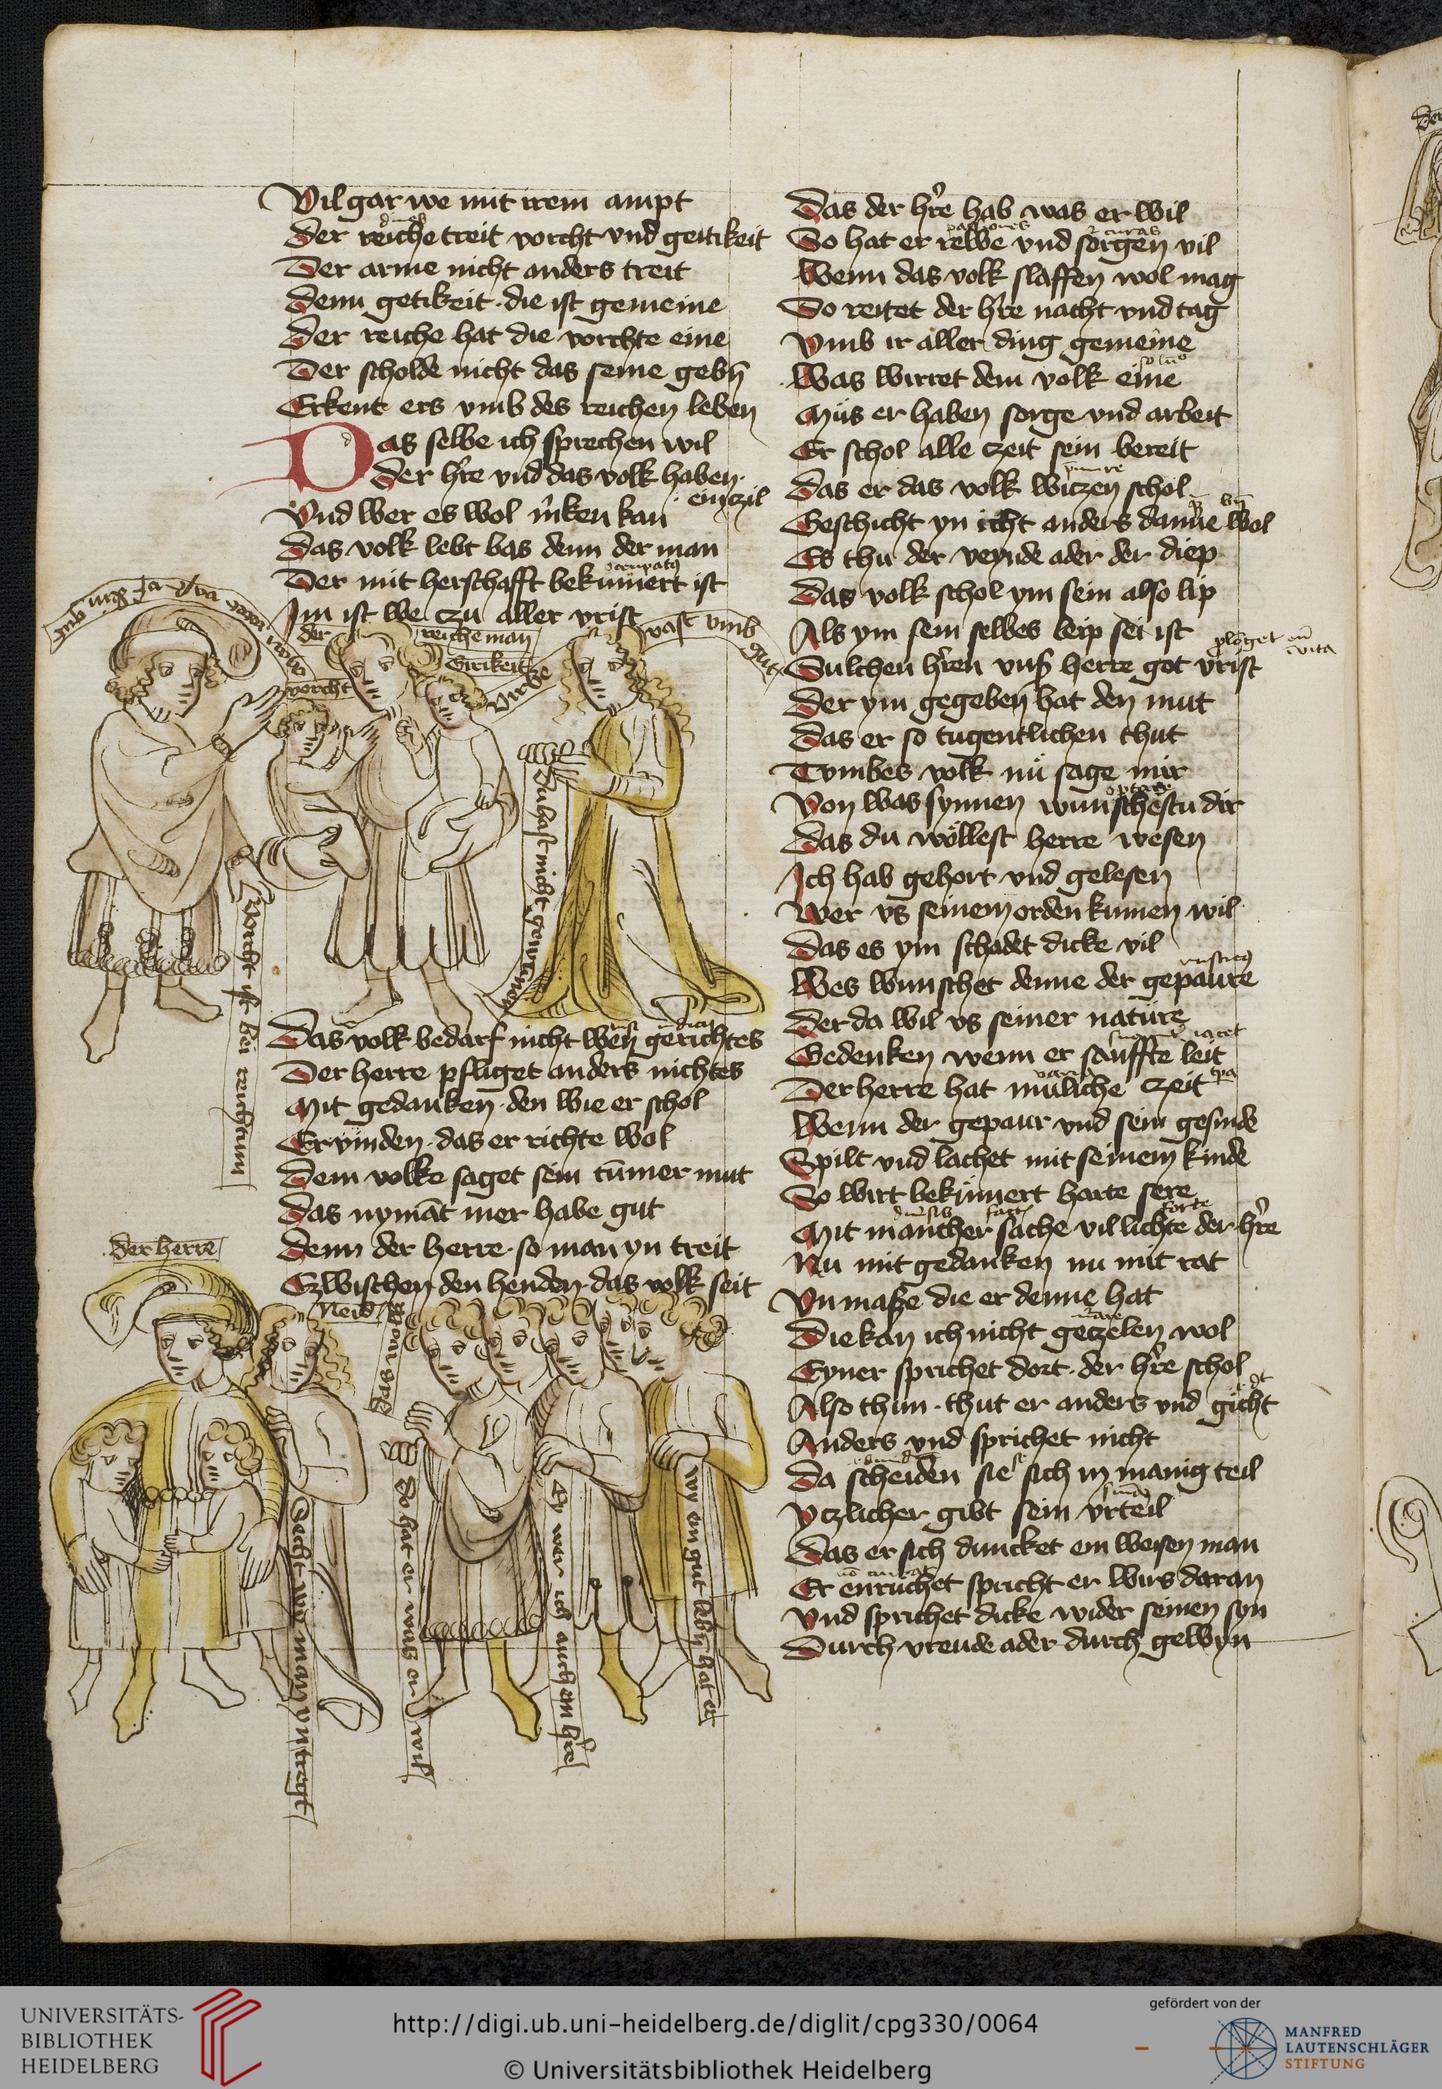 Vil gar we mit irem ampt
Der reiche treit vorcht vnd geitikeit
Der arme nicht anders treit
Denn getikeit · die ist gemeine
Der reiche hat die vorchte eine
Der scholde nicht das seine gebn̄
Erkent ers vmb des reichen leben
Das selbe ich sprechen wil
Der hr̄e vnd das volk haben
ein czil
Vnd wer es wol m̄ken kan
Das volk lebt bas denn der man
occupatꝰ
Der mit herschafft bekūmert ist
Im ist we czu aller vrist
der reiche man
Girikeit
vorcht
vast vmb gut
Du hast nicht gewunnen
vorcht ist bei reichtum
Das volk bedarf nicht wen̄ gerichtes
Der herre pfliget anders nichtes
Mit gedanken · den wie er schol
Ervinden · das er richte wol
Dem volke saget sein tūmer mut
Das nymāt mer habe gut
Denn der herre · so man yn treit
Czwischen den henden · das volk seit
der herre
Neid
Secht wo man yn tregt
So hat er was er wil
Ey wer ich auch ein hr̄e
wy ein gut lebn̄ hat er
Das der hr̄e hab was er wil
passiones
curas
So hat er rewe vnd sorgen vil
Wenn das volk slaffen wol mag
So reitet der hr̄e nacht vnd tag
Vmb ir aller ding gemeine
Was wirret dem volk eine
Mus er haben sorge vnd arbeit
Er schol alle czeit sein bereit
punire
Das er das volk wiczen schol
Geschicht yn icht anders danne wol
Es thu der veynde ader der diep
Das volk schol ym sein also lip
Als ym sein selbes leip sei ist
vita
Sulchen hr̄en vnß herre got vrist
Der ym gegeben hat den mut
Das er so tugentlichen thut
Tvmbes volk nu sage mir
optare
Von was synnen wunschestu dir
Das du wöllest herre wesen
Ich hab gehort vnd gelesen
Wer vs seinem orden kumen wil
Das es ym schadet dicke vil
rusticꝰ
Wes wunschet denne der gepaure
Der da wil vs seiner nature
iacet
Gedenken wenn er sauffte leit
Der herre hat muliche czeit
Wenn der gepaur vnd sein gesinde
Spilt vnd lachet mit seinem kinde
So wirt bekūmert harte sere
forte
Mit mancher sache vil lichte der hr̄e
Nu mit gedanken nu mit rat
Vnmaße die er denne hat
Die kan ich nicht geczelen wol
Eyner sprichet dort · der hr̄e schol
Also thun · thut er anders vnd gicht
Anders vnd sprichet nicht
Da scheiden sie sich in manig teil
Yczlicher gibt sein vrteil
Das er sich duncket ein weisen man
Er enruchet spricht er wirs daran
Vnd sprichet dicke wider seinen syn
Durch vreude ader durch gewyn
UNIVERSITÄTS-
BIBLIOTHEK
HEIDELBERG
http://digi.ub.uni-heidelberg.de/diglit/cpg330/0064
© Universitätsbibliothek Heidelberg
gefördert von der
MANFRED
LAUTENSCHLÄGER
STIFTUNG